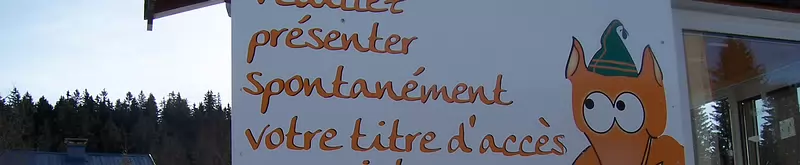 Veuillez
présenter
spontanément
votre titre d'accès